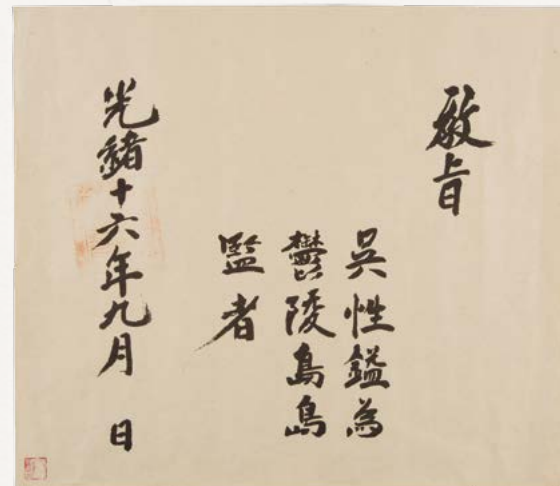 敎旨
吳性鎰為
鬱陵島島
監者
光緒十六年九月 日